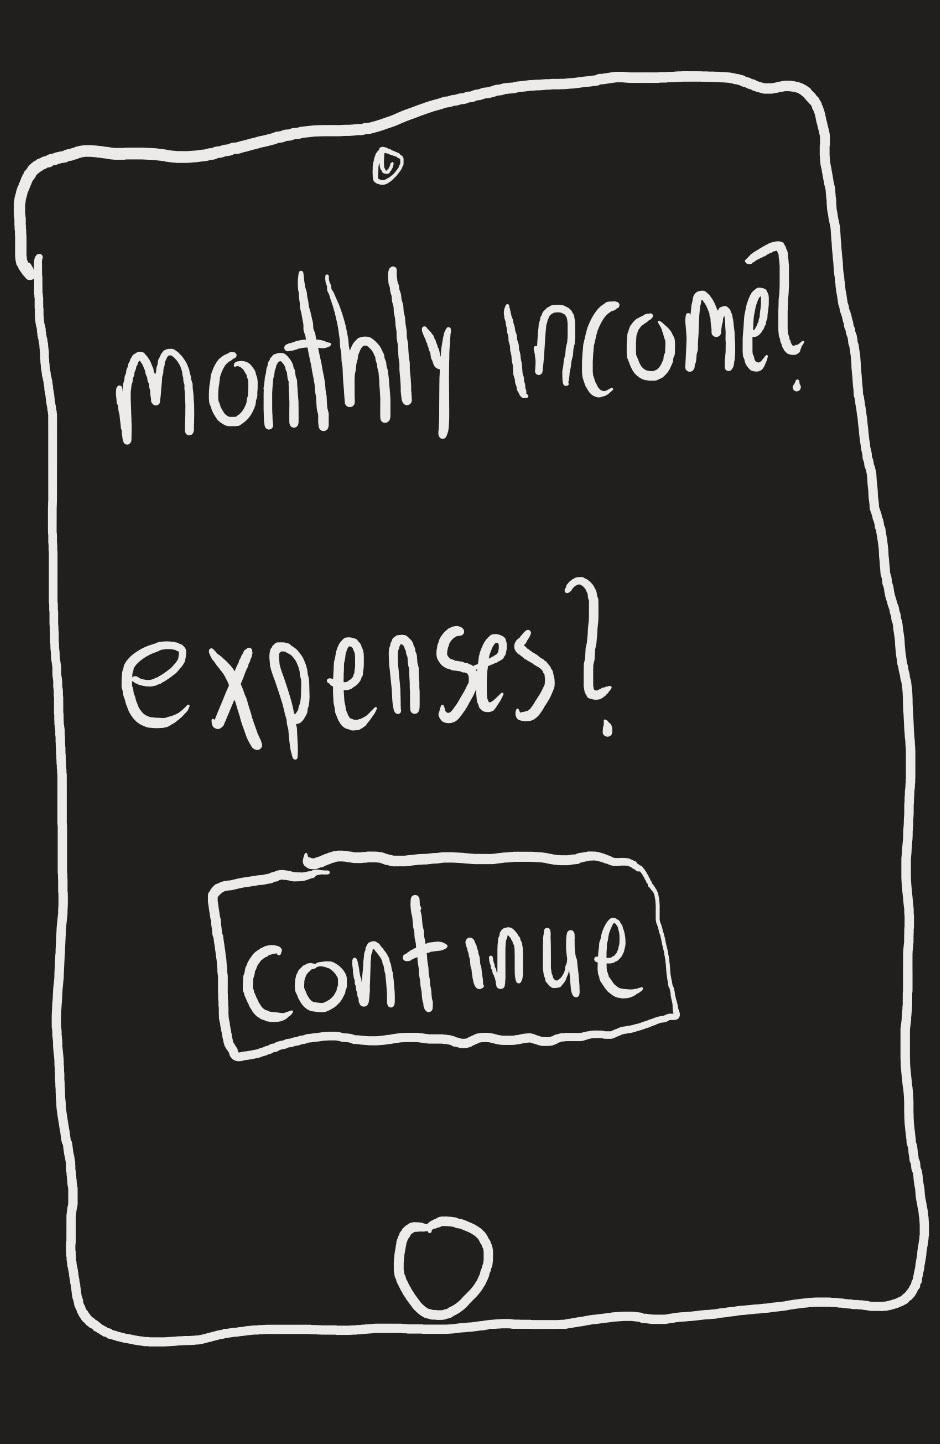 monthly income?
expenses?
continue